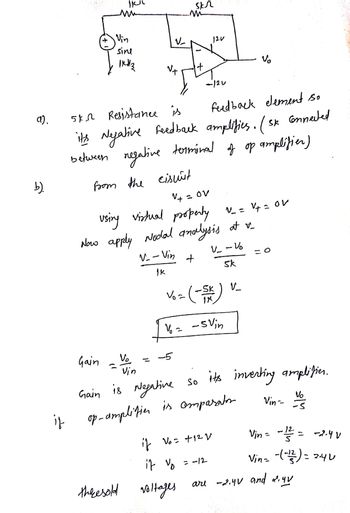 1kΩ
5kΩ
Vin
sine
1kHz
V-
12V
V+
-12V
Vo
a). 5kΩ Resistance is feedback element so
its Negative feedback amplifier. (5k connected
between negative terminal of op amplifier)
b) From the circuit
V+ = 0V
using virtual property V- = V+ = 0V
Now apply Nodal analysis at V-
V- - Vin / 1k + V- - Vo / 5k = 0
Vo = (-5k / 1k) V-
Vo = -5Vin
Gain = Vo / Vin = -5
Gain is Negative so its inverting amplifier.
if op-amplifier is comparator Vin = Vo / -5
if Vo = +12V Vin = -12/5 = -2.4V
if Vo = -12 Vin = -(-12/5) = 24V
threesold voltages are -2.4V and 2.4V